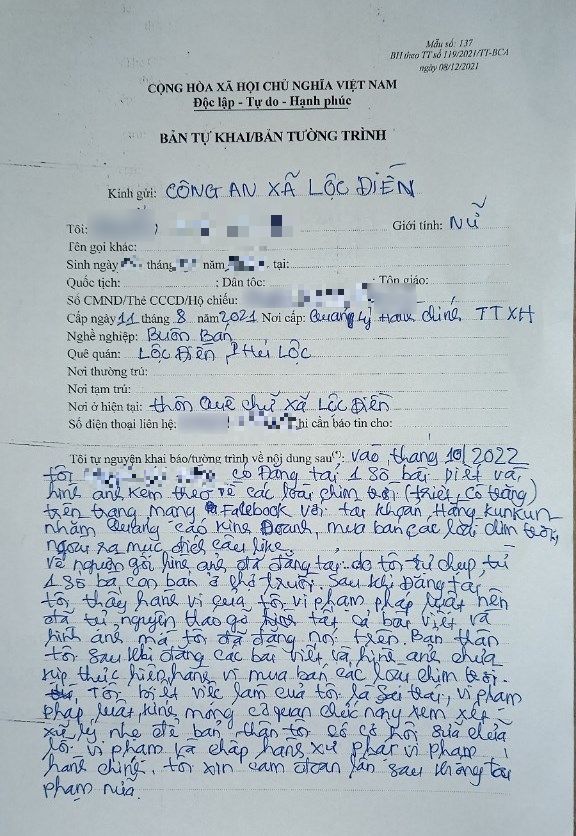 Mẫu số: 137
BH theo TT số 119/2021/TT-BCA
ngày 08/12/2021
CỘNG HÒA XÃ HỘI CHỦ NGHĨA VIỆT NAM
Độc lập - Tự do - Hạnh phúc
BẢN TỰ KHAI/BẢN TƯỜNG TRÌNH
Kính gửi: CÔNG AN XÃ LỘC ĐIỀN
Tôi: Giới tính: NỮ
Tên gọi khác:
Sinh ngày tháng năm tại:
Quốc tịch: ; Dân tộc: ; Tôn giáo:
Số CMND/Thẻ CCCD/Hộ chiếu:
Cấp ngày 11 tháng 8 năm 2021 Nơi cấp: Quản lý hành chính TTXH
Nghề nghiệp: Buôn Bán
Quê quán: LỘC ĐIỀN, Phú LỘC
Nơi thường trú:
Nơi tạm trú:
Nơi ở hiện tại: thôn Quê chữ xã LỘC ĐIỀN
Số điện thoại liên hệ: khi cần báo tin cho:
Tôi tự nguyện khai báo/tường trình về nội dung sau(*): vào tháng 10/2022
tôi có Đăng tải 1 số bài viết và
hình ảnh kèm theo về các loài chim trời (triết, cò trắng)
trên trang mạng Facebook với tài khoản Hằng Kunkun
nhằm Quảng cáo kinh Doanh, mua bán các loài chim trời,
ngoài ra mục đích câu like.
về nguồn gốc hình ảnh đã đăng tải do tôi tự chụp từ
1 số bà con bán ở chợ truồi. Sau khi Đăng tải
tôi thấy hành vi của tôi vi phạm pháp luật nên
đã tự nguyện tháo gỡ tất cả bài viết và
hình ảnh mà tôi đã đăng nói trên. Bản thân
tôi sau khi đăng các bài viết và hình ảnh chưa
kịp thực hiện hành vi mua bán các loài chim trời.
Tôi biết việc làm của tôi là sai trái, vi phạm
pháp luật, kính mong cơ quan chức năng xem xét
xử lý nhẹ để bản thân tôi có cơ hội sửa chữa
lỗi vi phạm và chấp hành xử phạt vi phạm
hành chính. tôi xin cam đoan lần sau không tái
phạm nữa.